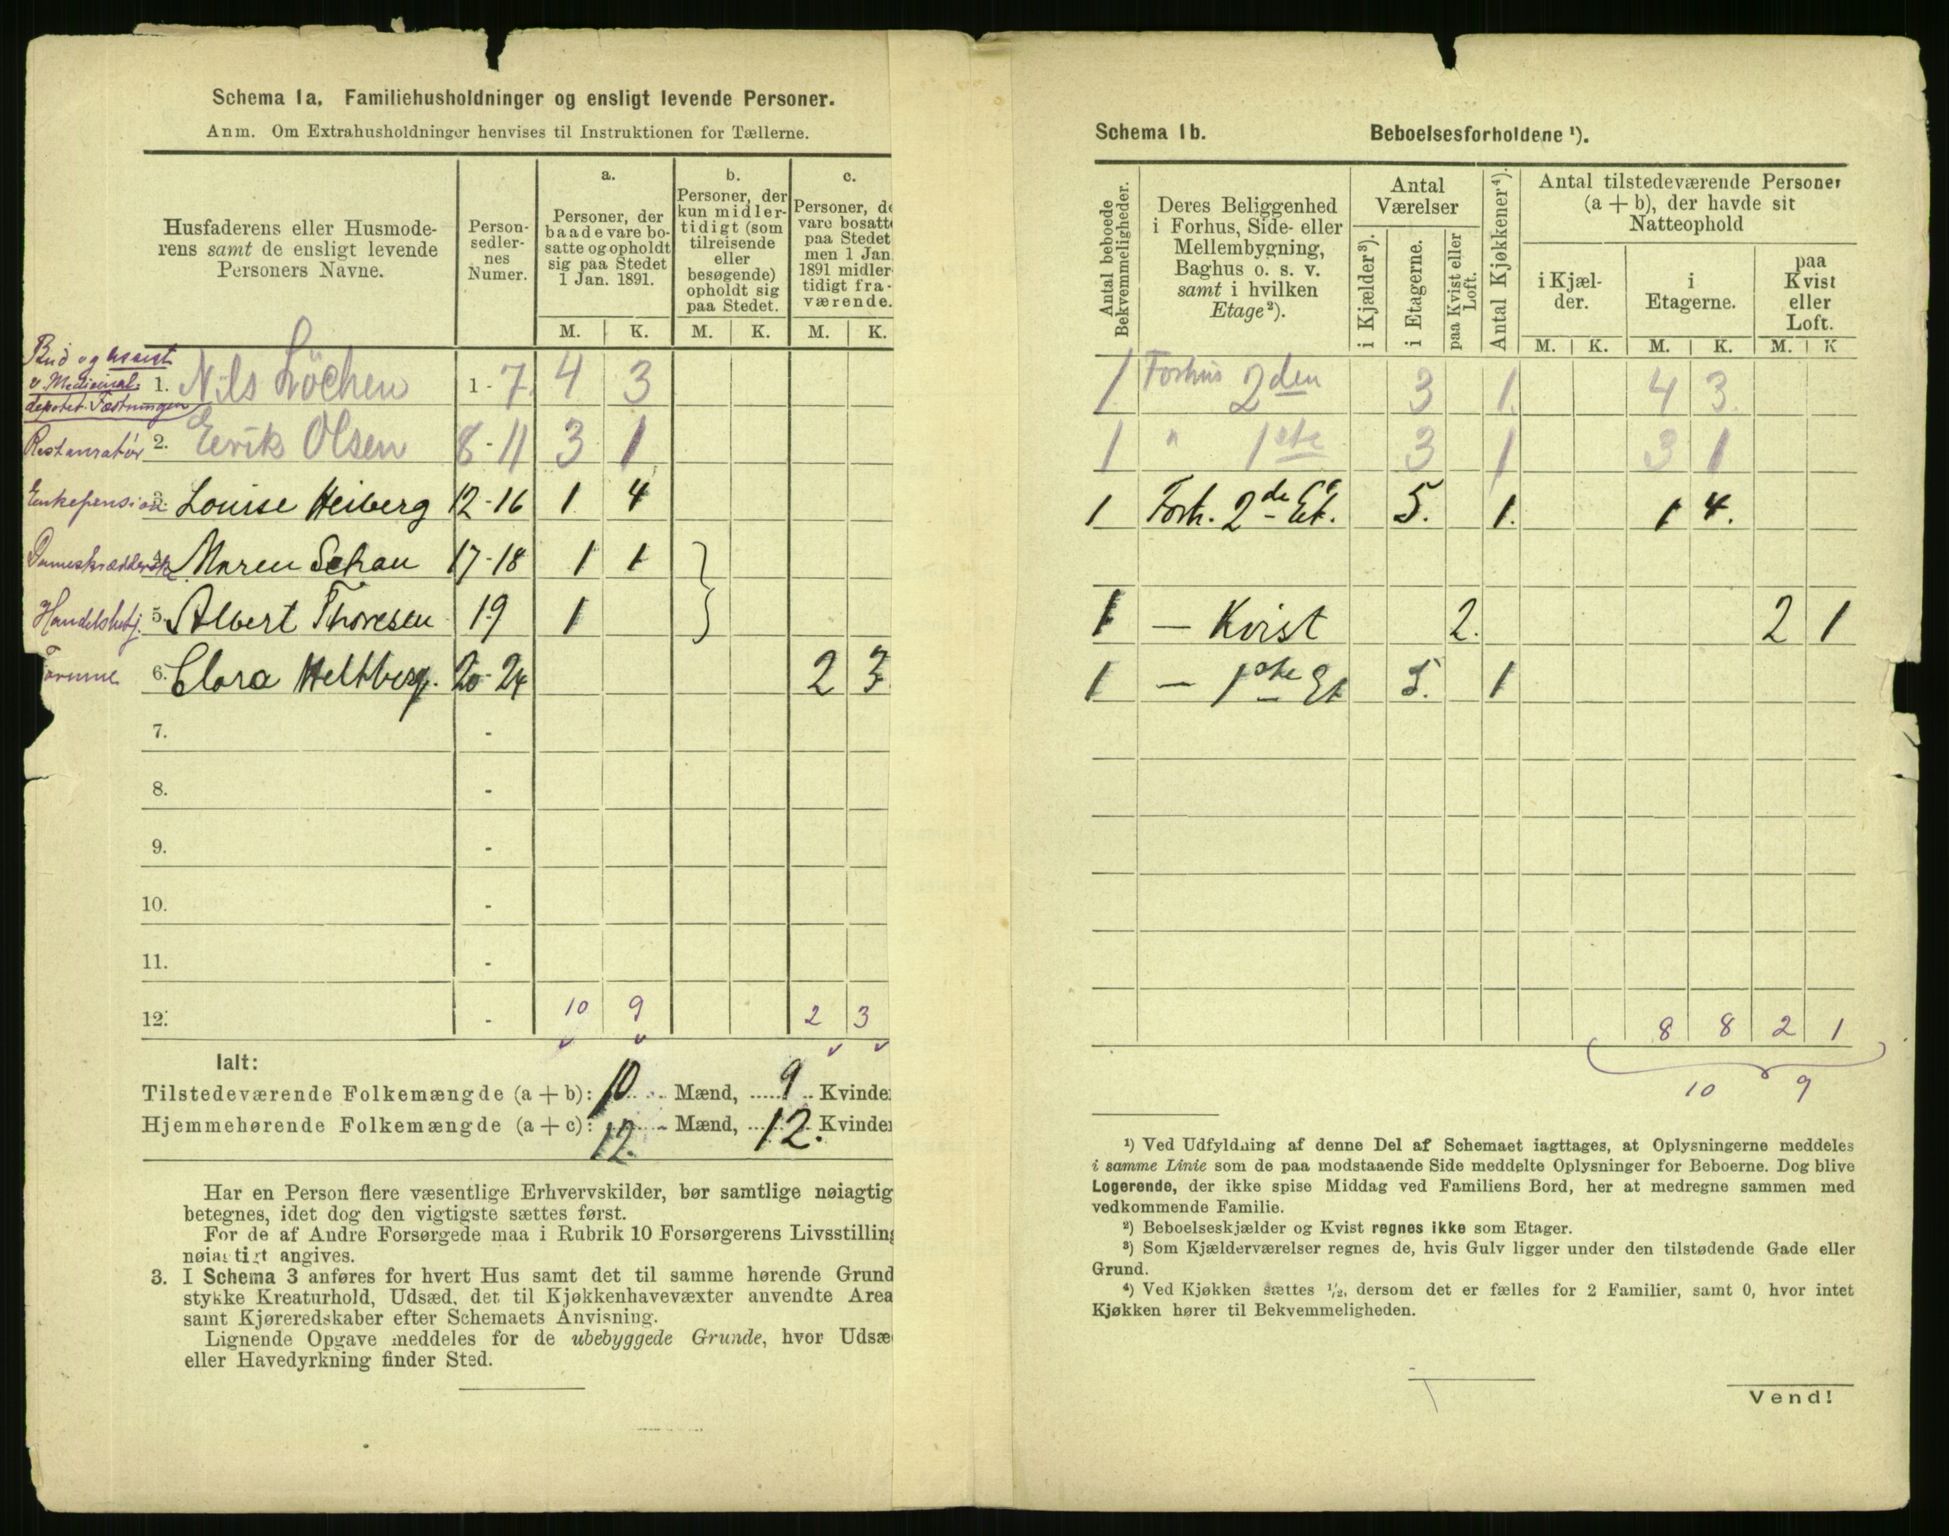 Schema 1a. Familiehusholdninger og ensligt levende Personer.
Anm. Om Extrahusholdninger henvises til Instruktionen for Tællerne.
Husfaderens eller Husmode-
rens samt de ensligt levende
Personers Navne.
Person-
sedler-
nes
Numer.
a.
Personer, der
baade vare bo-
satte og opholdt
sig paa Stedet
1 Jan. 1891.
b.
Personer, der
kun midler-
tidigt (som
tilreisende
eller
besøgende)
opholdt sig
paa Stedet.
c.
Personer, de
vare bosatte
paa Stedet
men 1 Jan.
1891 midler-
tidigt fra-
værende.
M. K. M. K. M. K.
Bud og
v. Medicinal-
depotet Fæstningen
1. Nils Löchen 1-7 4 3
Restauratør 2. Eerik Olsen 8-11 3 1
Enkepension 3. Louise Heiberg 12-16 1 4
Dameskrædderske 4. Maren Schau 17-18 1 1
Handelsbetj. 5. Albert Thoresen 19 1
Formue 6. Clara Heltberg. 20-24 2 3
7. -
8. -
9. -
10. -
11. -
12. - 10 9 2 3
Ialt:
Tilstedeværende Folkemængde (a + b): 10 Mænd, 9 Kvinder
Hjemmehørende Folkemængde (a + c): 12. Mænd, 12. Kvinder
Har en Person flere væsentlige Erhvervskilder, bør samtlige nøiagtig
betegnes, idet dog den vigtigste sættes først.
For de af Andre Forsørgede maa i Rubrik 10 Forsørgerens Livsstilling
nøiagtigt angives.
3. I Schema 3 anføres for hvert Hus samt det til samme hørende Grund
stykke Kreaturhold, Udsæd, det til Kjøkkenhavevæxter anvendte Area
samt Kjøreredskaber efter Schemaets Anvisning.
Lignende Opgave meddeles for de ubebyggede Grunde, hvor Udsæ
eller Havedyrkning finder Sted.
Schema 1b. Beboelsesforholdene ¹).
Antal beboede
Bekvemmeligheder.
Deres Beliggenhed
i Forhus, Side- eller
Mellembygning,
Baghus o. s. v.
samt i hvilken
Etage²).
Antal
Værelser
i Kjælder³).
i Etagerne.
paa Kvist eller
Loft.
Antal Kjøkkener⁴).
Antal tilstedeværende Personer
(a + b), der havde sit
Natteophold
i Kjæl-
der.
i
Etagerne.
paa
Kvist
eller
Loft.
M. K. M. K. M. K
1 Forhus 2den 3 1. 4 3.
1 " 1ste 3 1 3 1
1 Forh. 2de Et. 5. 1. 1 4.
1 — Kvist 2. 2 1
1 — 1ste Et 5. 1
8 8 2 1
10 9
¹) Ved Udfyldning af denne Del af Schemaet iagttages, at Oplysningerne meddeles
i samme Linie som de paa modstaaende Side meddelte Oplysninger for Beboerne. Dog blive
Logerende, der ikke spise Middag ved Familiens Bord, her at medregne sammen med
vedkommende Familie.
²) Beboelseskjælder og Kvist regnes ikke som Etager.
³) Som Kjælderværelser regnes de, hvis Gulv ligger under den tilstødende Gade eller
Grund.
⁴) Ved Kjøkken sættes ½, dersom det er fælles for 2 Familier, samt 0, hvor intet
Kjøkken hører til Bekvemmeligheden.
Vend!